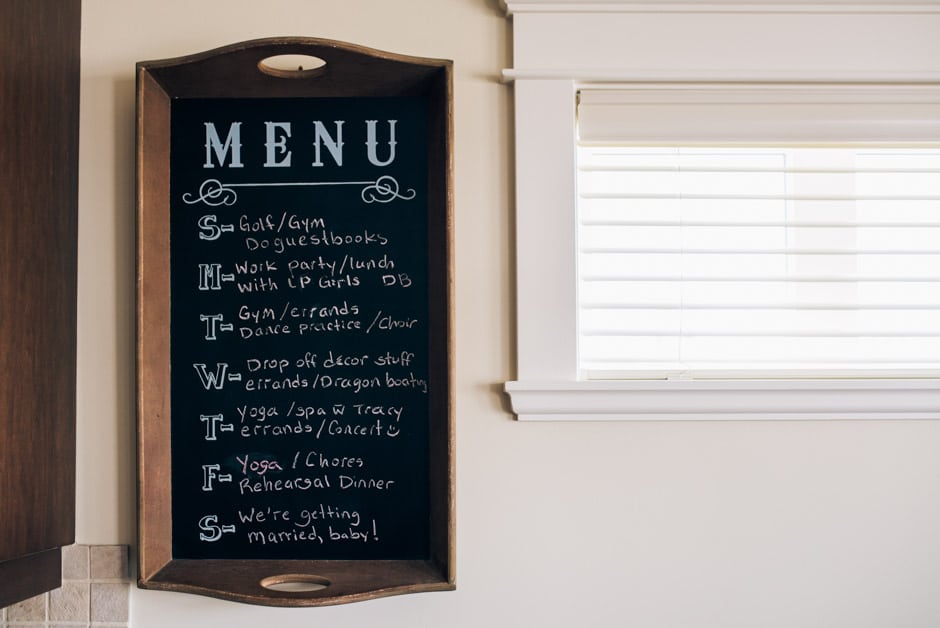 MENU
S- Golf/Gym
Do guestbooks
M- Work party/lunch
with LP Girls DB
T- Gym/errands
Dance practice /Choir
W- Drop off décor stuff
errands/Dragon boating
T- Yoga /spa w̄ Tracy
errands/Concert ☺
F- Yoga / Chores
Rehearsal Dinner
S- We're getting
married, baby!